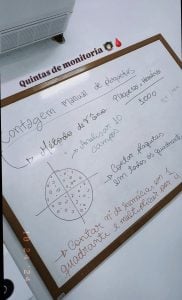 Quintas de monitoria
Contagem manual de plaquetas
Método de Fônio
Plaquetas x Hemácias
1000
Analisar 10
campos
Contar plaquetas
em todos os quadrantes
Contar nº de hemácias em 1
quadrante e multiplicar por 4
18 04 24